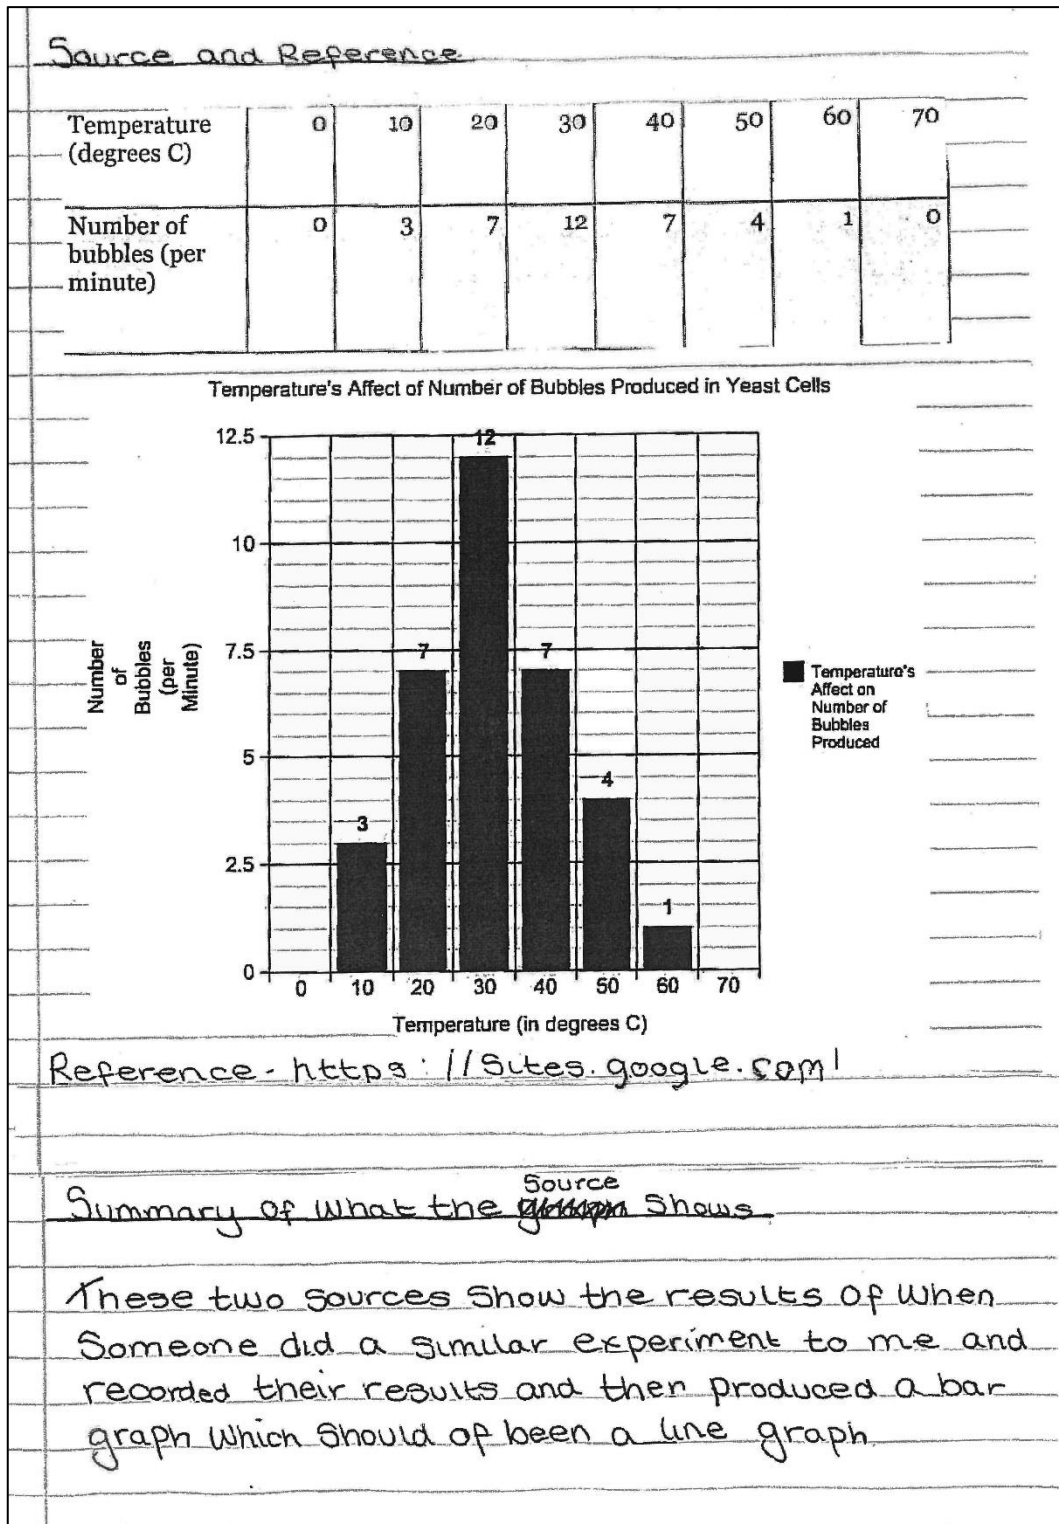 Source and Reference
Temperature (degrees C) 0 10 20 30 40 50 60 70
Number of bubbles (per minute) 0 3 7 12 7 4 1 0
Temperature's Affect of Number of Bubbles Produced in Yeast Cells
12.5
10
7.5
5
2.5
0
Number
of
Bubbles
(per
Minute)
3
7
12
7
4
1
0 10 20 30 40 50 60 70
Temperature (in degrees C)
Temperature's
Affect on
Number of
Bubbles
Produced
Reference - https://sites.google.com/
Source
Summary of what the shows.
These two sources show the results of when
someone did a similar experiment to me and
recorded their results and then produced a bar
graph which should of been a line graph.